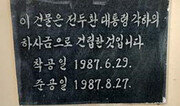 이 건물은 전두환 대통령 각하의
하사금으로 건립한것입니다
착공일 1987.6.29.
준공일 1987.8.27.